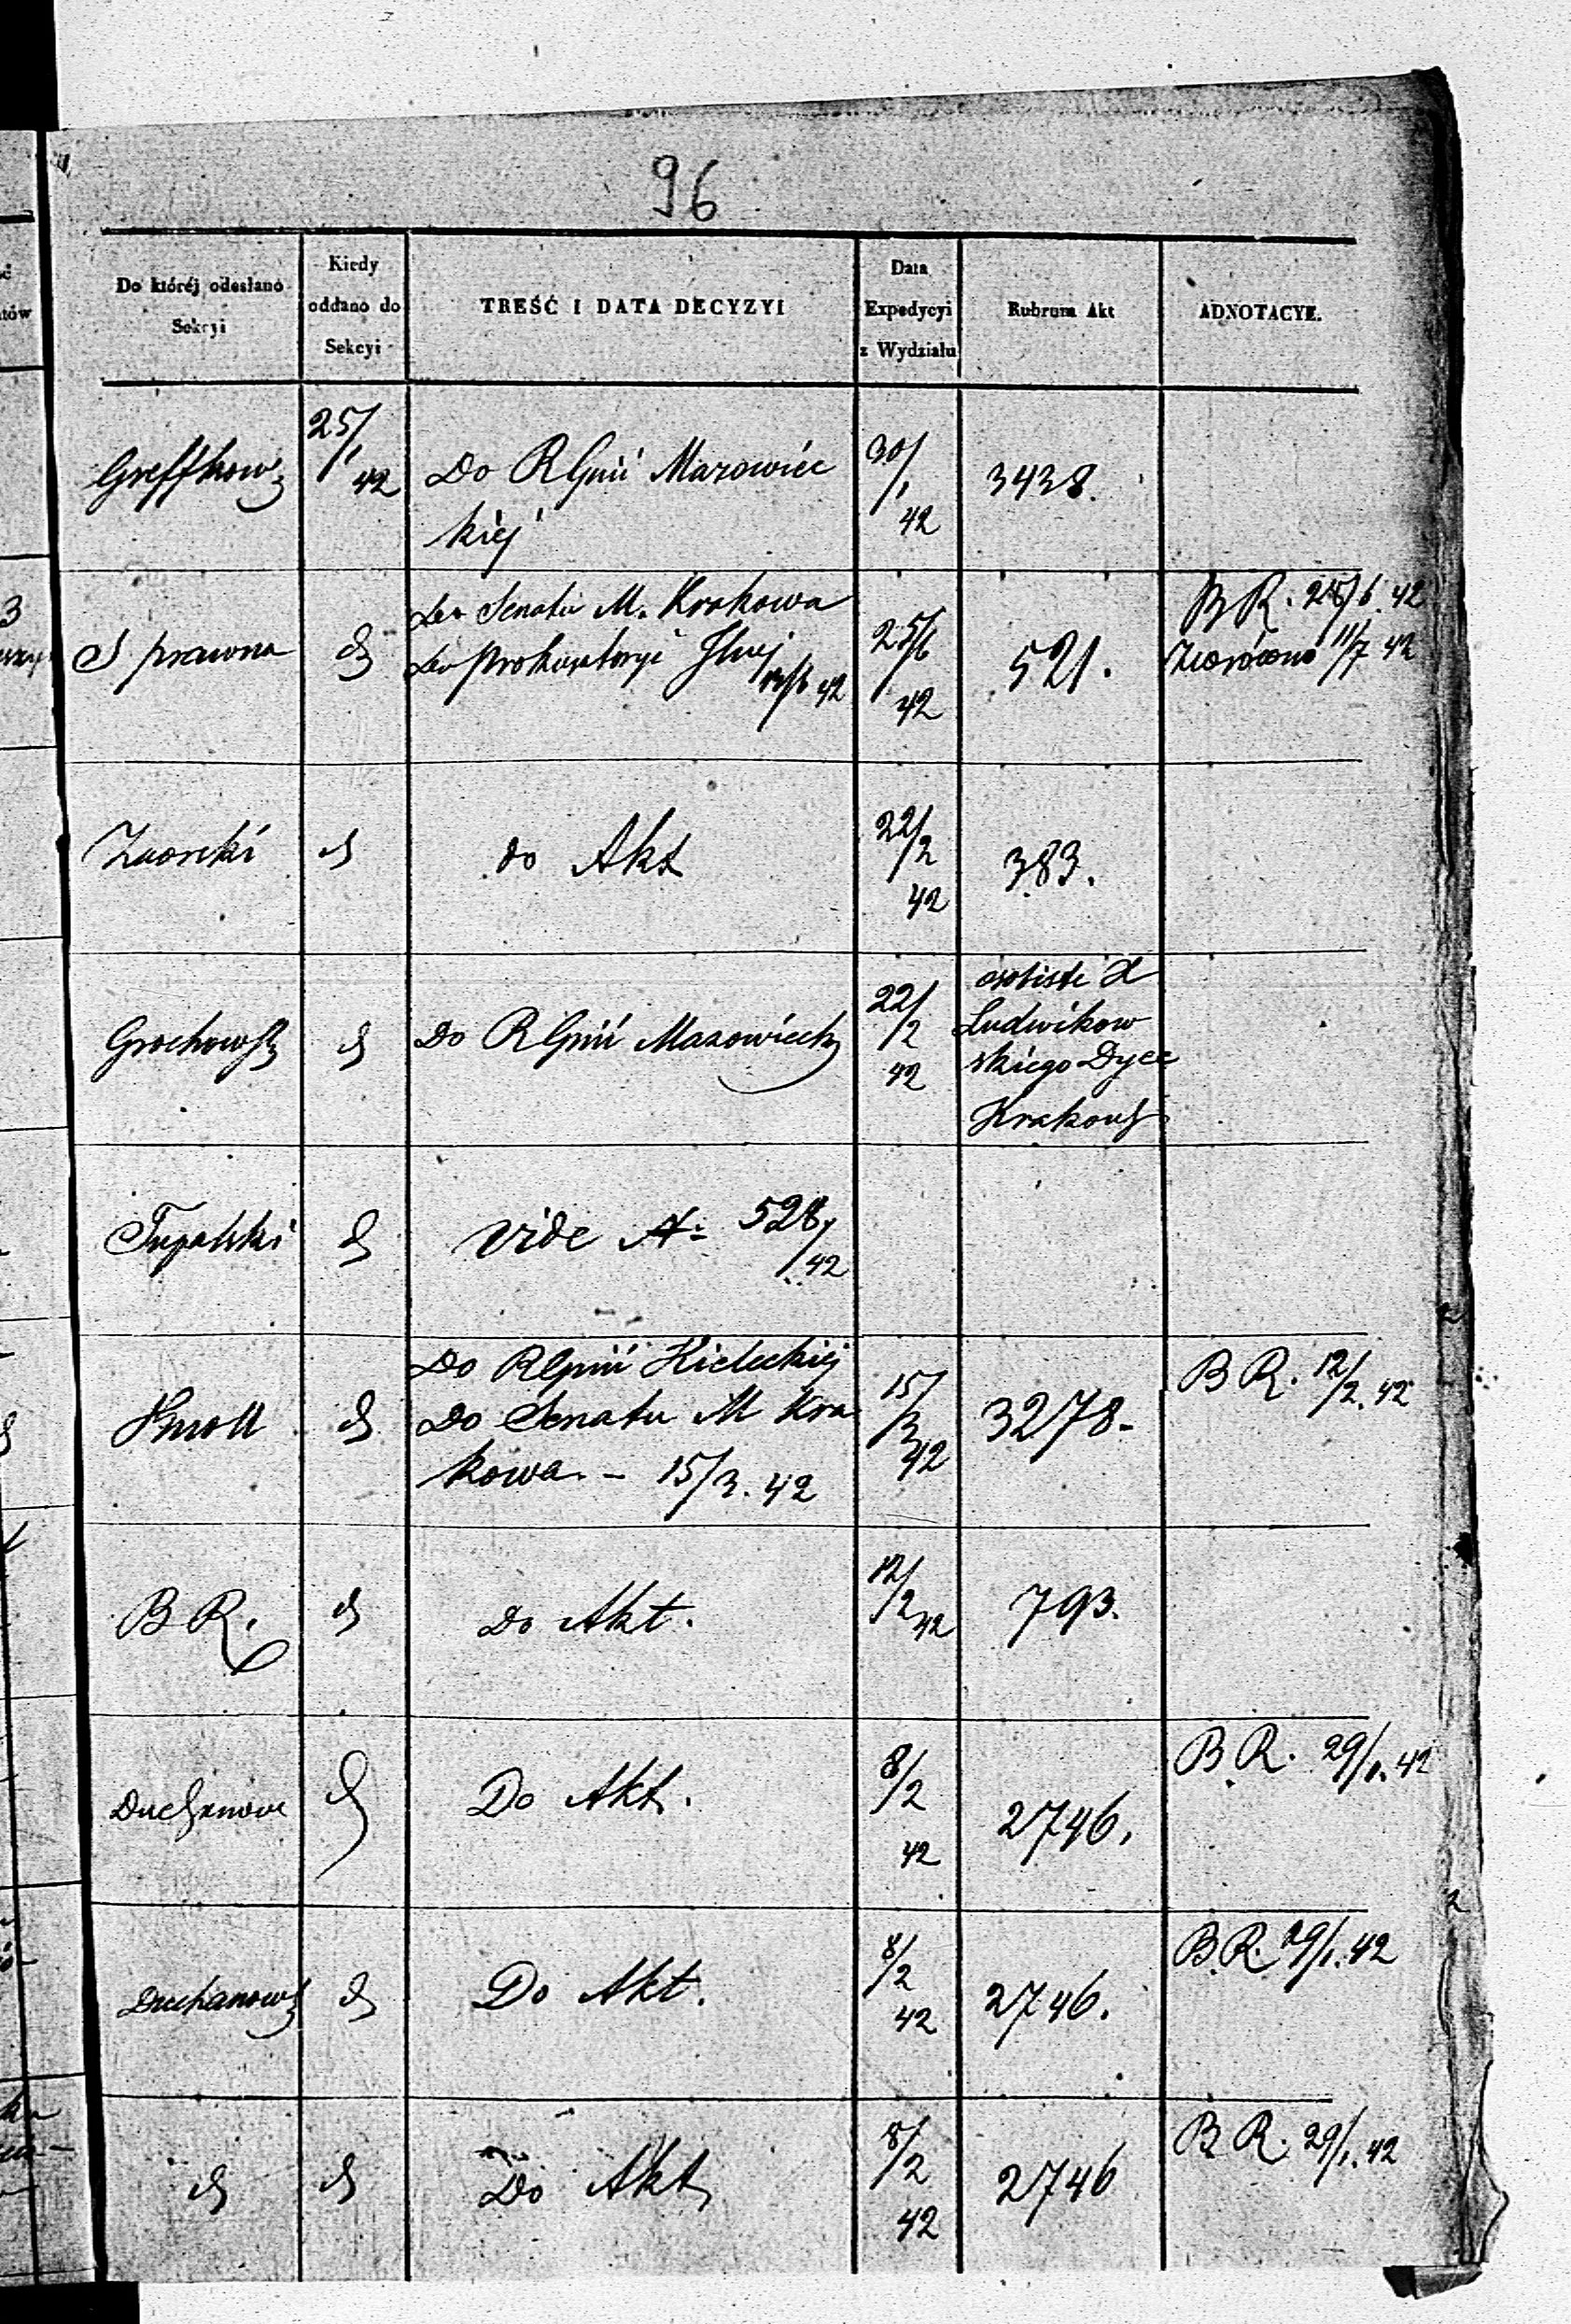 96
Do któréj odesłano
Sekcyi
Kiedy
oddano do
Sekcyi
TREŚĆ I DATA DECYZYI
Data
Expedycyi
z Wydziału
Rubrum Akt
ADNOTACYE.
25/1 42
Do RGnii Mazowiec
kiej
30/1 42
3438.
S prawna
Do Senatu M. Krakowa
Do Prokuratoryi
25/6 42
521.
B R. 25/6. 42
Zwrócono 11/7 42
do Akt
22/2 42
383.
Grochowsk
Do RGnii Mazowieck
22/2 42
osobiste
Ludwikow
skiego Dyec
Krakows
Tupalski
vide N: 528/42
Knoll
Do RGnii Kieleckiej
Do Senatu M Kra
kowa. - 15/3. 42
15/3 42
3278.
B R. 12/2. 42
B R.
Do Akt.
12/2 42
793.
Duchanow
Do Akt.
8/2 42
2746.
B R. 29/1. 42
Duchanows
Do Akt.
8/2 42
2746.
B. R. 29/1. 42
Do Akt
8/2 42
2746
B R. 29/1. 42